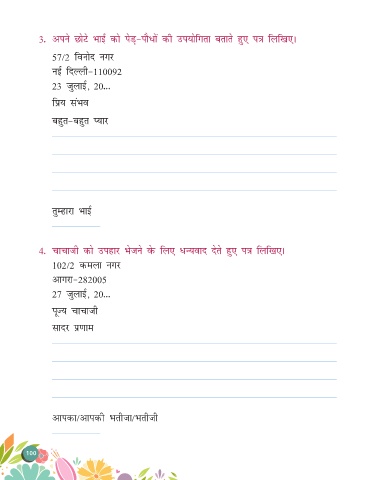 3. अपने छोटे भाई को पेड़-पौधों की उपयोगिता बताते हुए पत्र लिखिए।
57/2 विनोद नगर
नई दिल्ली-110092
23 जुलाई, 20...
प्रिय संभव
बहुत-बहुत प्यार
तुम्हारा भाई
4. चाचाजी को उपहार भेजने के लिए धन्यवाद देते हुए पत्र लिखिए।
102/2 कमला नगर
आगरा-282005
27 जुलाई, 20...
पूज्य चाचाजी
सादर प्रणाम
आपका/आपकी भतीजा/भतीजी
100